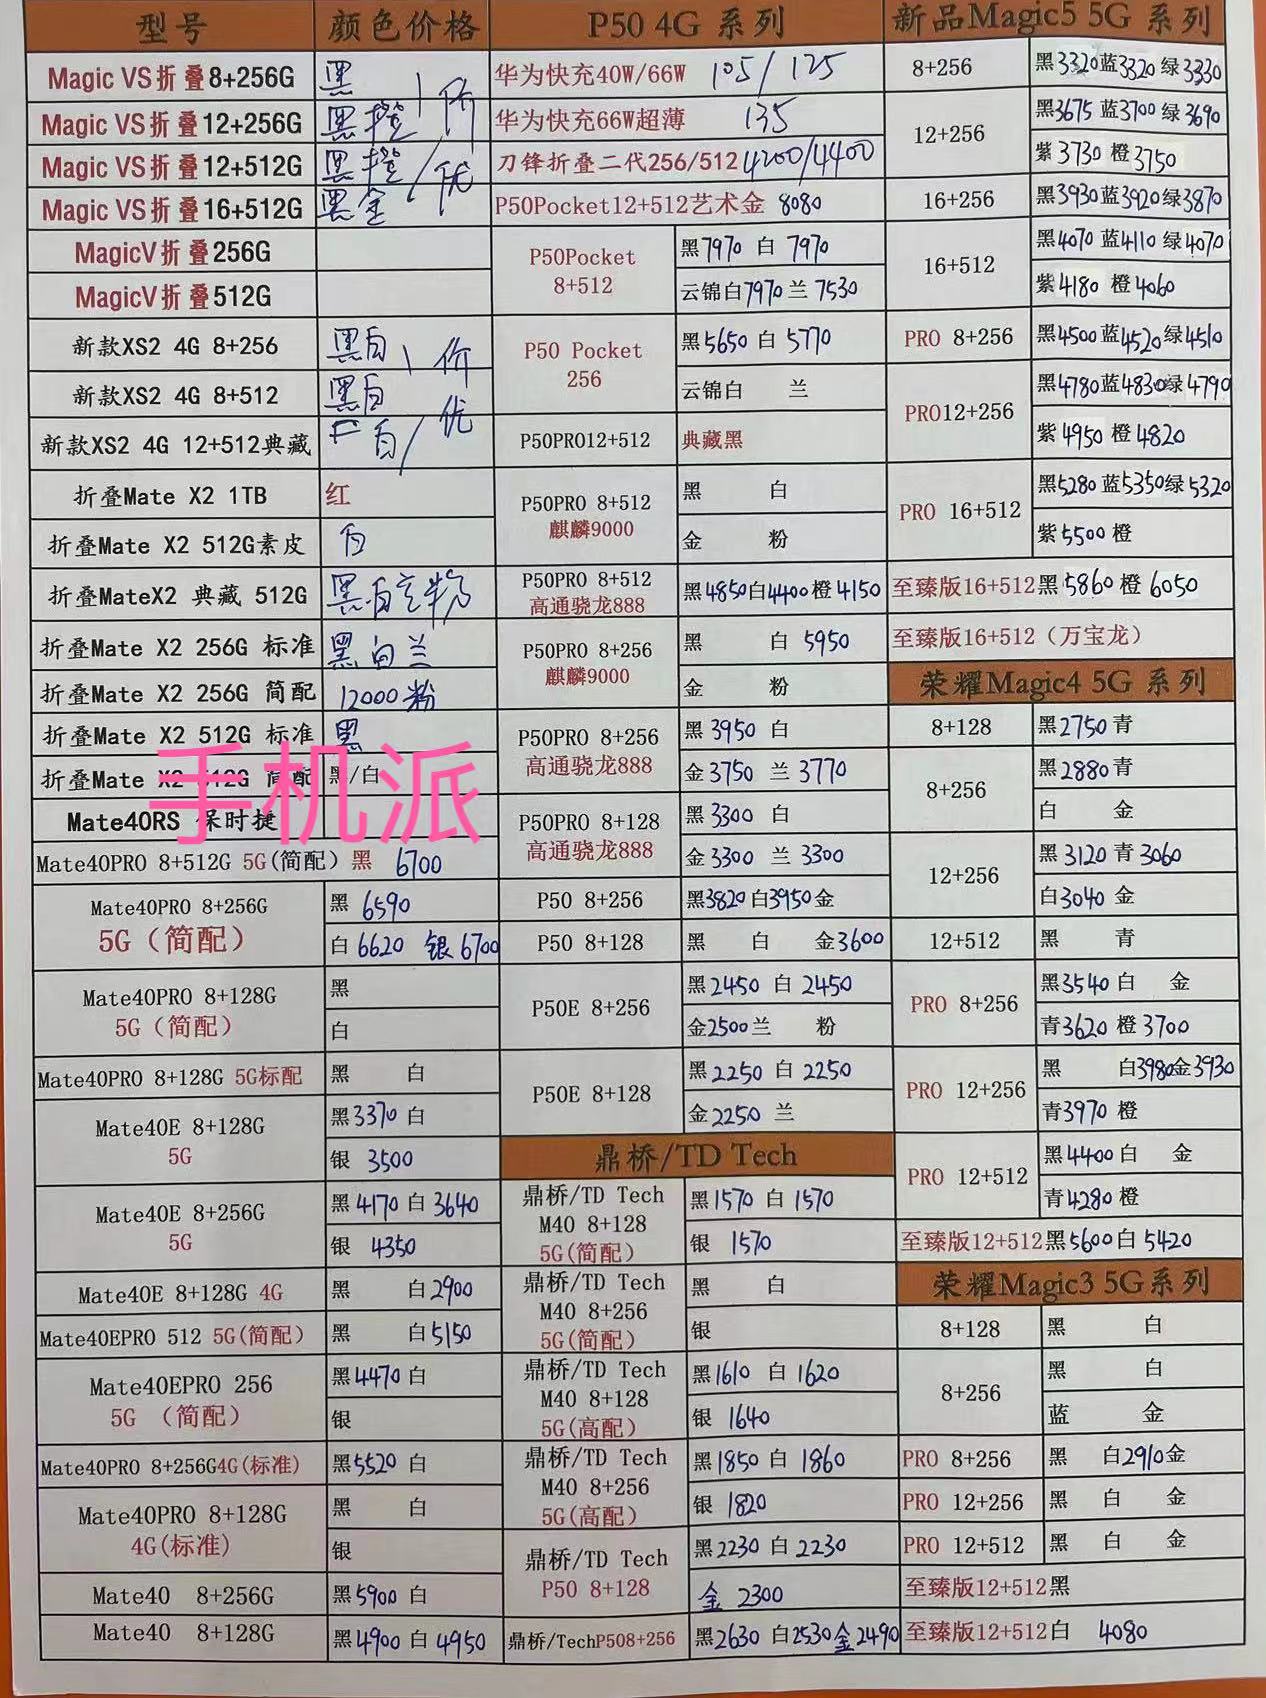 型号 颜色价格 P50 4G 系列 新品Magic5 5G 系列
Magic VS折叠8+256G 黑
Magic VS折叠12+256G 黑橙 \价
Magic VS折叠12+512G 黑橙
Magic VS折叠16+512G 黑金 /优
MagicV折叠256G
MagicV折叠512G
新款XS2 4G 8+256 黑白 \价
新款XS2 4G 8+512 黑白
新款XS2 4G 12+512典藏 白 /优
折叠Mate X2 1TB 红
折叠Mate X2 512G素皮 白
折叠MateX2 典藏 512G 黑白 粉
折叠Mate X2 256G 标准 黑白兰
折叠Mate X2 256G 简配 12000粉
折叠Mate X2 512G 标准 黑
折叠Mate X2 512G 简配 黑/白
手机派
Mate40RS 保时捷
Mate40PRO 8+512G 5G(简配) 黑 6700
Mate40PRO 8+256G
5G(简配)
黑 6590
白 6620 银 6700
Mate40PRO 8+128G
5G(简配)
黑
白
Mate40PRO 8+128G 5G标配 黑 白
Mate40E 8+128G
5G
黑3370 白
银 3500
Mate40E 8+256G
5G
黑4170 白 3640
银 4350
Mate40E 8+128G 4G 黑 白2900
Mate40EPRO 512 5G(简配) 黑 白5150
Mate40EPRO 256
5G (简配)
黑4470 白
银
Mate40PRO 8+256G4G(标准) 黑5520 白
Mate40PRO 8+128G
4G(标准)
黑 白
银
Mate40 8+256G 黑5900 白
Mate40 8+128G 黑4900 白 4950
华为快充40W/66W 105/125
华为快充66W超薄 135
刀锋折叠二代256/512 4200/4400
P50Pocket12+512艺术金 8080
P50Pocket
8+512
黑7970 白 7970
云锦白7970兰 7530
P50 Pocket
256
黑5650 白 5770
云锦白 兰
P50PRO12+512 典藏黑
P50PRO 8+512
麒麟9000
黑 白
金 粉
P50PRO 8+512
高通骁龙888
黑4850白4400橙 4150
P50PRO 8+256
麒麟9000
黑 白 5950
金 粉
P50PRO 8+256
高通骁龙888
黑 3950 白
金3750 兰 3770
P50PRO 8+128
高通骁龙888
黑 3300 白
金 3300 兰 3300
P50 8+256 黑3820 白3950金
P50 8+128 黑 白 金3600
P50E 8+256
黑2450 白 2450
金2500兰 粉
P50E 8+128
黑 2250 白 2250
金2250 兰
鼎桥/TD Tech
鼎桥/TD Tech
M40 8+128
5G(简配)
黑1570 白 1570
银 1570
鼎桥/TD Tech
M40 8+256
5G(简配)
黑 白
银
鼎桥/TD Tech
M40 8+128
5G(高配)
黑1610 白 1620
银 1640
鼎桥/TD Tech
M40 8+256
5G(高配)
黑1850 白 1860
银 1820
鼎桥/TD Tech
P50 8+128
黑2230 白 2230
金 2300
鼎桥/TechP508+256 黑2630 白2530金2490
8+256 黑3320蓝3320 绿3330
12+256
黑3675 蓝3700 绿3690
紫 3730 橙3750
16+256 黑3930蓝3920绿3870
16+512
黑4070 蓝4110 绿4070
紫4180 橙4060
PRO 8+256 黑4500蓝4520绿4510
PRO12+256
黑4780蓝4830绿4790
紫4950 橙4820
PRO 16+512
黑5280蓝5350绿5320
紫5500 橙
至臻版16+512黑5860 橙 6050
至臻版16+512(万宝龙)
荣耀Magic4 5G 系列
8+128 黑2750 青
8+256
黑2880青
白 金
12+256
黑 3120 青3060
白3040 金
12+512 黑 青
PRO 8+256
黑3540白 金
青3620 橙 3700
PRO 12+256
黑 白3980金3930
青3970 橙
PRO 12+512
黑4400白 金
青4280 橙
至臻版12+512黑5600白 5420
荣耀Magic3 5G系列
8+128 黑 白
8+256
黑 白
蓝 金
PRO 8+256 黑 白2910金
PRO 12+256 黑 白 金
PRO 12+512 黑 白 金
至臻版12+512黑
至臻版12+512白 4080